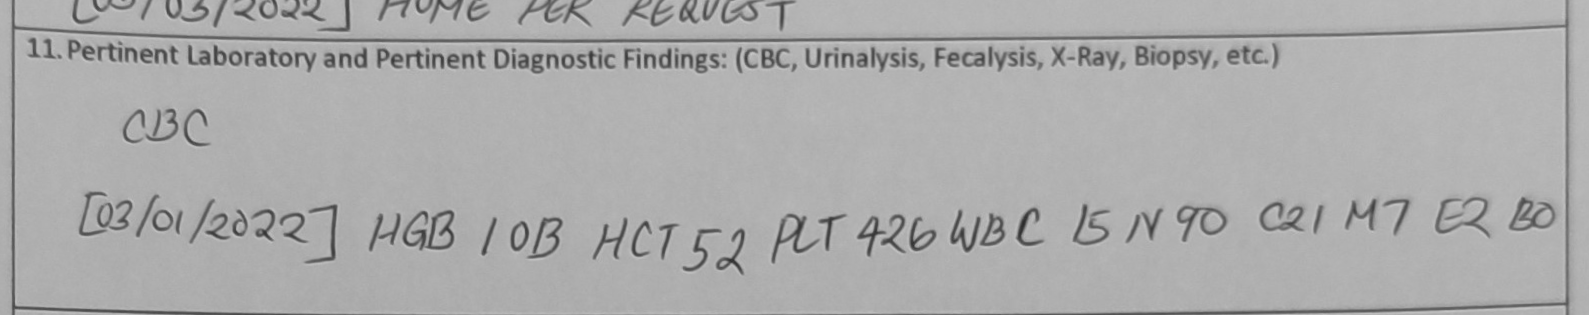 [03/03/2022] HOME PER REQUEST
11. Pertinent Laboratory and Pertinent Diagnostic Findings: (CBC, Urinalysis, Fecalysis, X-Ray, Biopsy, etc.)
CBC
[03/01/2022] HGB 10B HCT 52 PLT 426 WBC 15 N 90 C21 M7 E2 B0